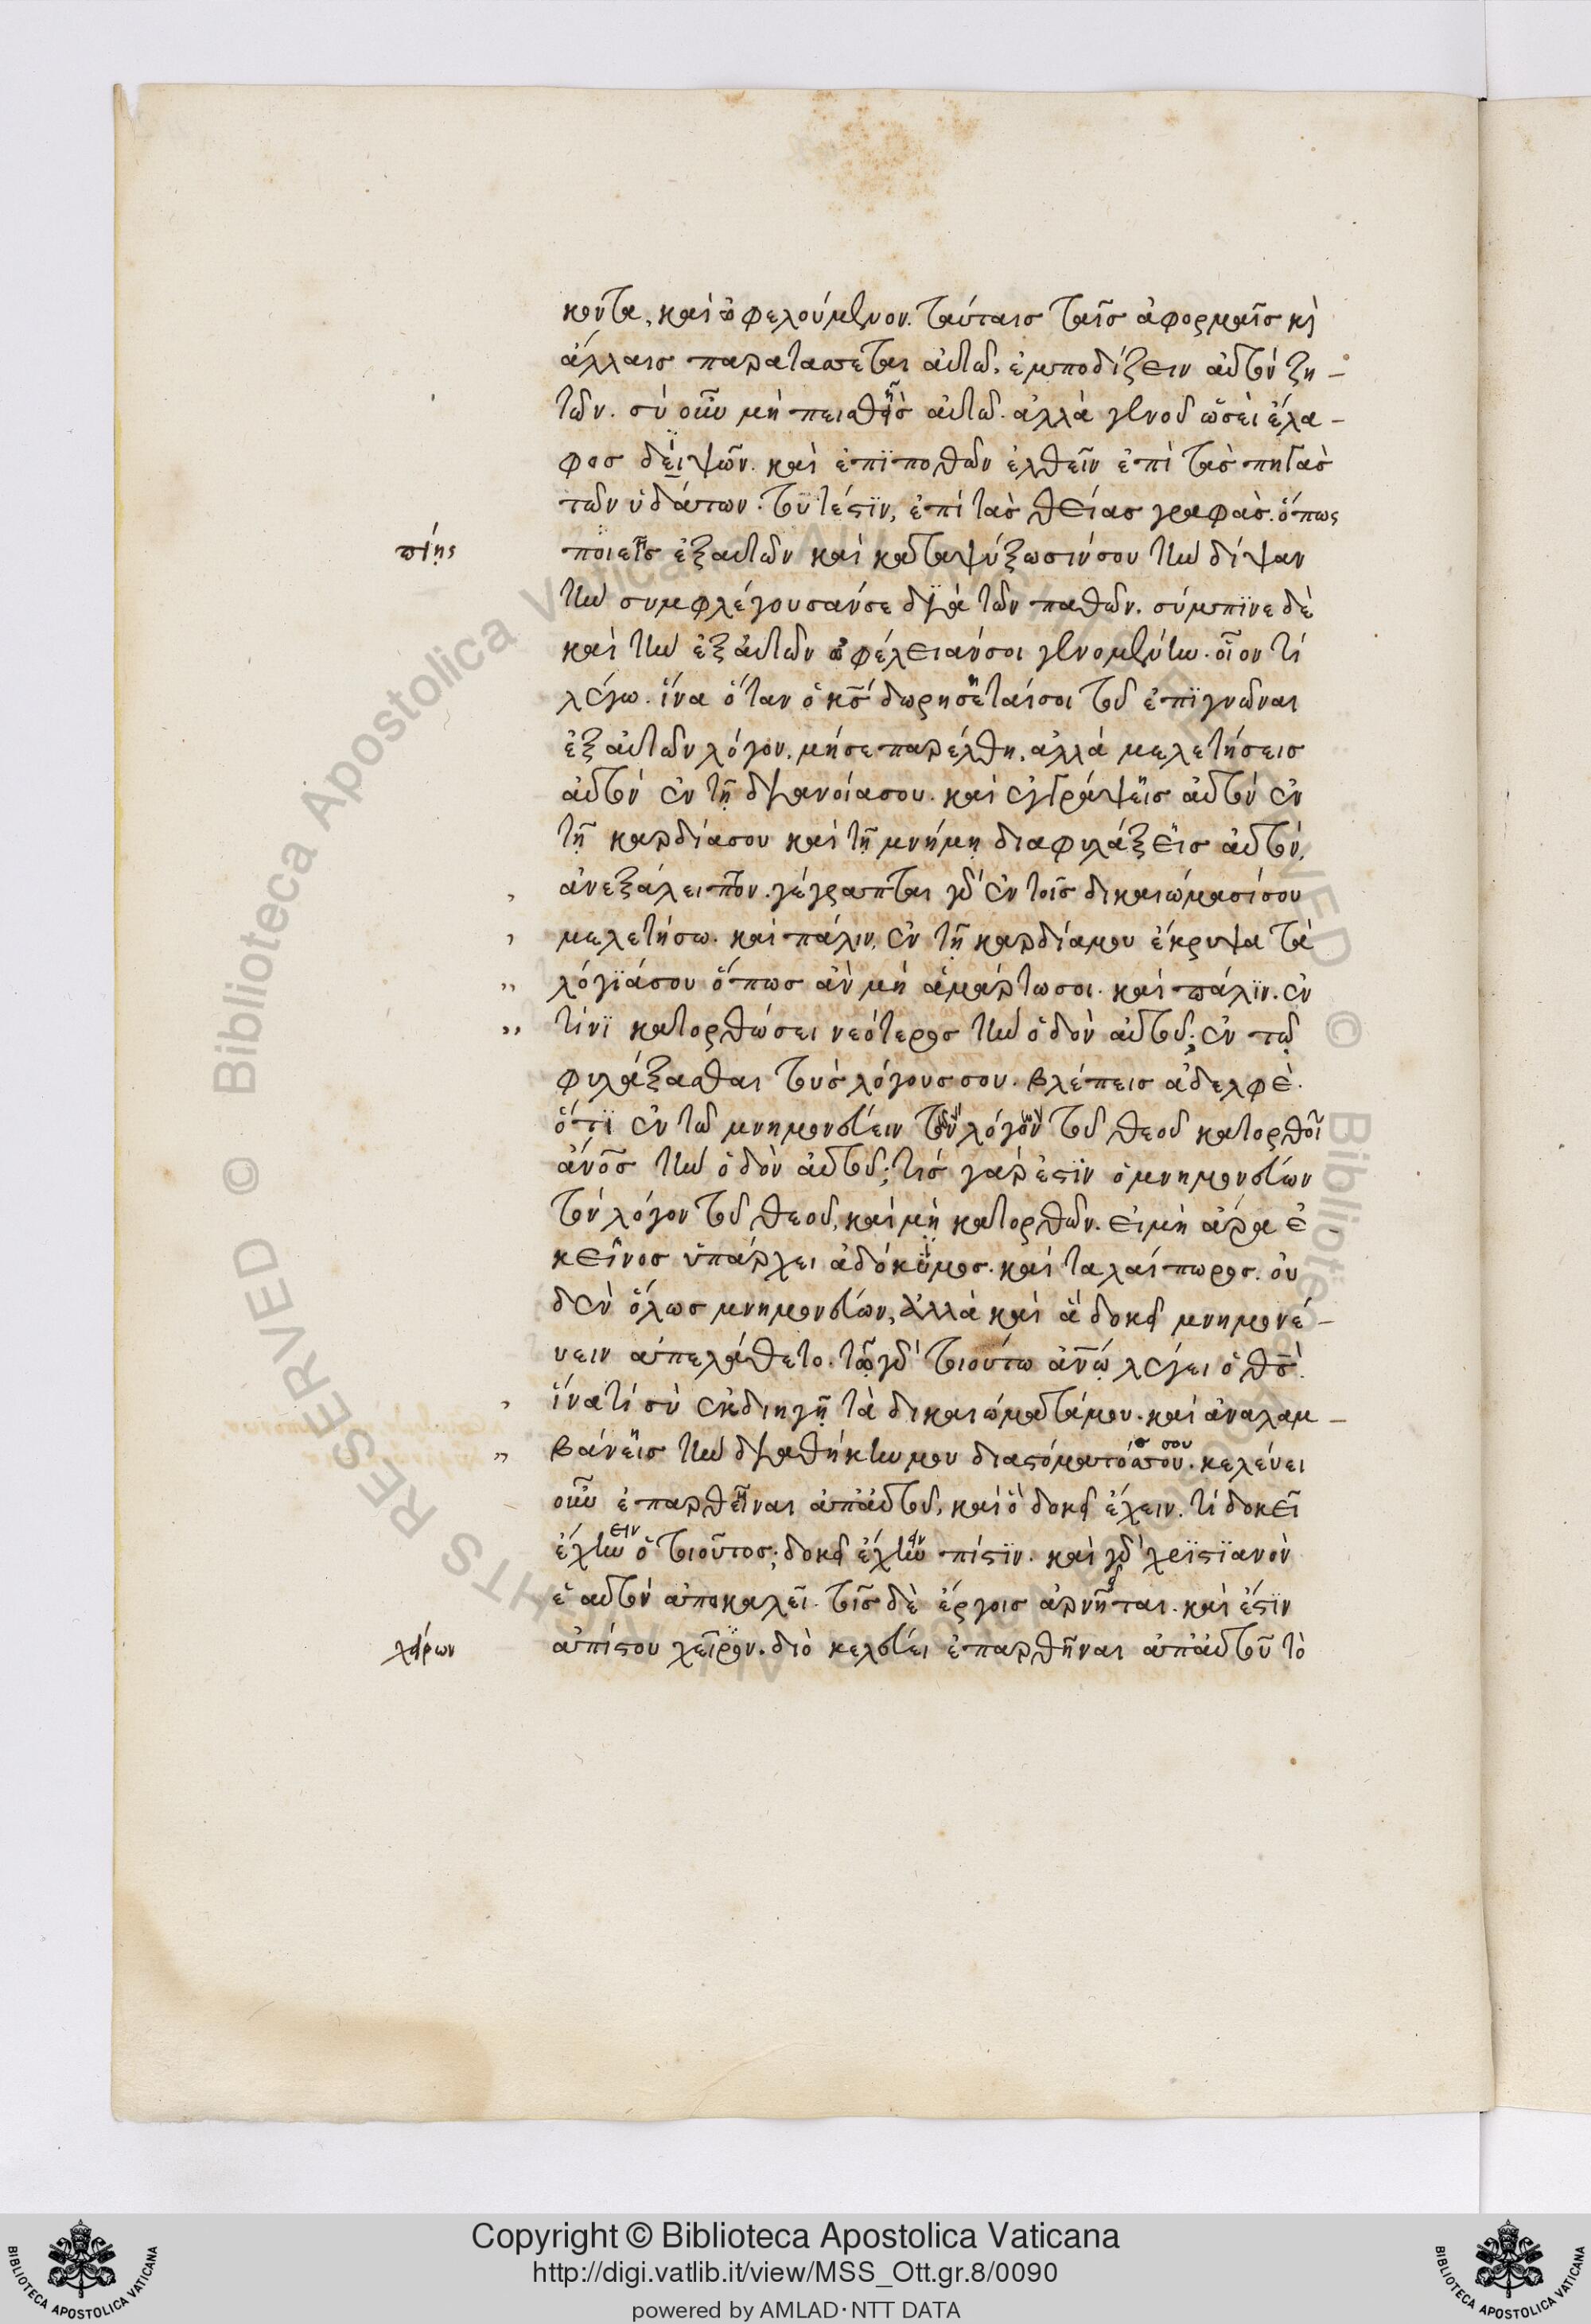 κοντα, καὶ ὀφελούμενον. ταύταις ταῖς ἀφορμαῖς κὶ
ἄλλαις παρατάσσεται αὐτῶ, ἐμποδίζειν αὐτὸν ζη-
τῶν. σὺ οὖν μὴ πεισθῆς αὐτῶ. ἀλλὰ γενοῦ ὡσεὶ ἔλα-
φος δειψῶν. καὶ ἐπϊποθῶν ἐλθεῖν ἐπὶ τὰς πηγὰς
τῶν ὑδάτων. τουτέστϊν, ἐπὶ τὰς θείας γραφάς. ὅπως
πίῃς
ποιεῖς ἐξαυτῶν καὶ καταψύξωσίνσου τὴν δίψαν
τὴν συμφλέγουσάνσε διὰ τῶν παθῶν. σύμπϊνε δὲ
καὶ τὴν ἐξ αὐτῶν ὀφέλειάνσοι γενομένην. οἷον τί
λέγω. ἵνα ὅταν ὁ κς δωρησεταίσοι τοῦ ἐπϊγνῶναι
ἐξ αὐτῶν λόγον, μήσε παρέλθη, ἀλλὰ μελετήσεις
αὐτὸν ἐν τῆ διανοίασου. καὶ ἐγγράψεις αὐτὸν ἐν
τῇ καρδίασου καὶ τῇ μνήμῃ διαφυλάξεις αὐτὸν,
ἀνεξάλειπτον. γέγραπται γὰρ ἐν τοῖς δικαιώμασίσου
μελετήσω. καὶ πάλιν, ἐν τῇ καρδίαμου ἔκρυψα τὰ
λόγϊάσου ὅπως ἂν μὴ ἁμάρτωσοι. καὶ πάλϊν. ἐν
τίνϊ κατορθώσει νεότερος τὴν ὁδὸν αὐτοῦ; ἐν τῷ
φυλάξασθαι τοὺς λόγους σου. βλέπεις ἀδελφέ.
ὅτϊ ἐν τῶ μνημονεύειν τὸν λόγον τοῦ θεοῦ κατορθοῖ
ἄνος τὴν ὁδὸν αὐτοῦ; τίς γὰρ ἐστϊν ὁ μνημονεύων
τὸν λόγον τοῦ θεοῦ, καὶ μὴ κατορθῶν. εἰμὴ ἄρα ἐ-
κεῖνος ὑπάρχει ἀδόκιμος. καὶ ταλαίπωρος. οὐ
δὲν ὅλως μνημονεύων, ἀλλὰ καὶ ἃ δοκεῖ μνημονέ-
υειν ἀπελάθετο. τῷ γὰρ τοιούτω ἀνῷ λέγει ὁ θς.
ἵνατί σὺ ἐκδιηγῇ τὰ δικαιώματάμου. καὶ ἀναλαμ-
βάνεις τὴν διαθήκηνμου διαστόματόσσου. κελέυει
οὖν ἐπαρθῆναι ἀπ' αὐτοῦ, καὶ ὃ δοκεῖ ἔχειν. τί δοκεῖ
ἔχειν ὁ τοιοῦτος; δοκεῖ ἔχειν πίστϊν. καὶ γὰρ χρϊστϊανὸν
ἑαυτὸν ἀποκαλεῖ. τοῖς δὲ ἔργοις ἀρνεῖται. καὶ ἔστιν
χείρων
ἀπίστου χεῖρον. διὸ κελεύει ἐπαρθῆναι ἀπ' αὐτοῦ τὸ
Copyright © Biblioteca Apostolica Vaticana
http://digi.vatlib.it/view/MSS_Ott.gr.8/0090
powered by AMLAD·NTT DATA